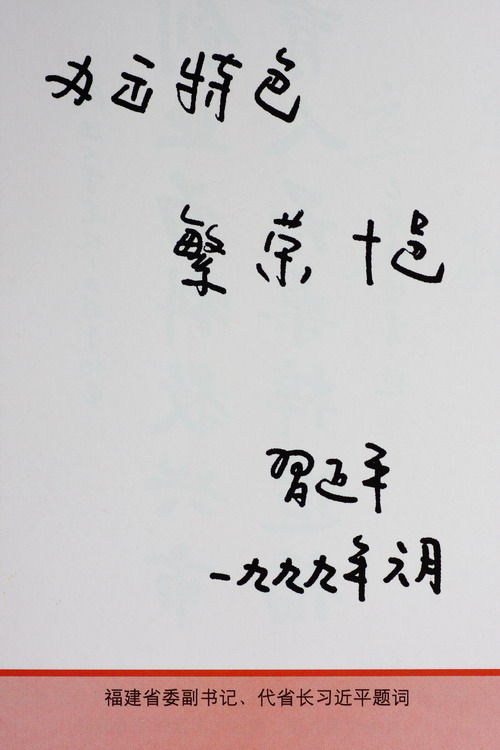 办出特色
繁荣十邑
習近平
一九九九年六月
福建省委副书记、代省长习近平题词